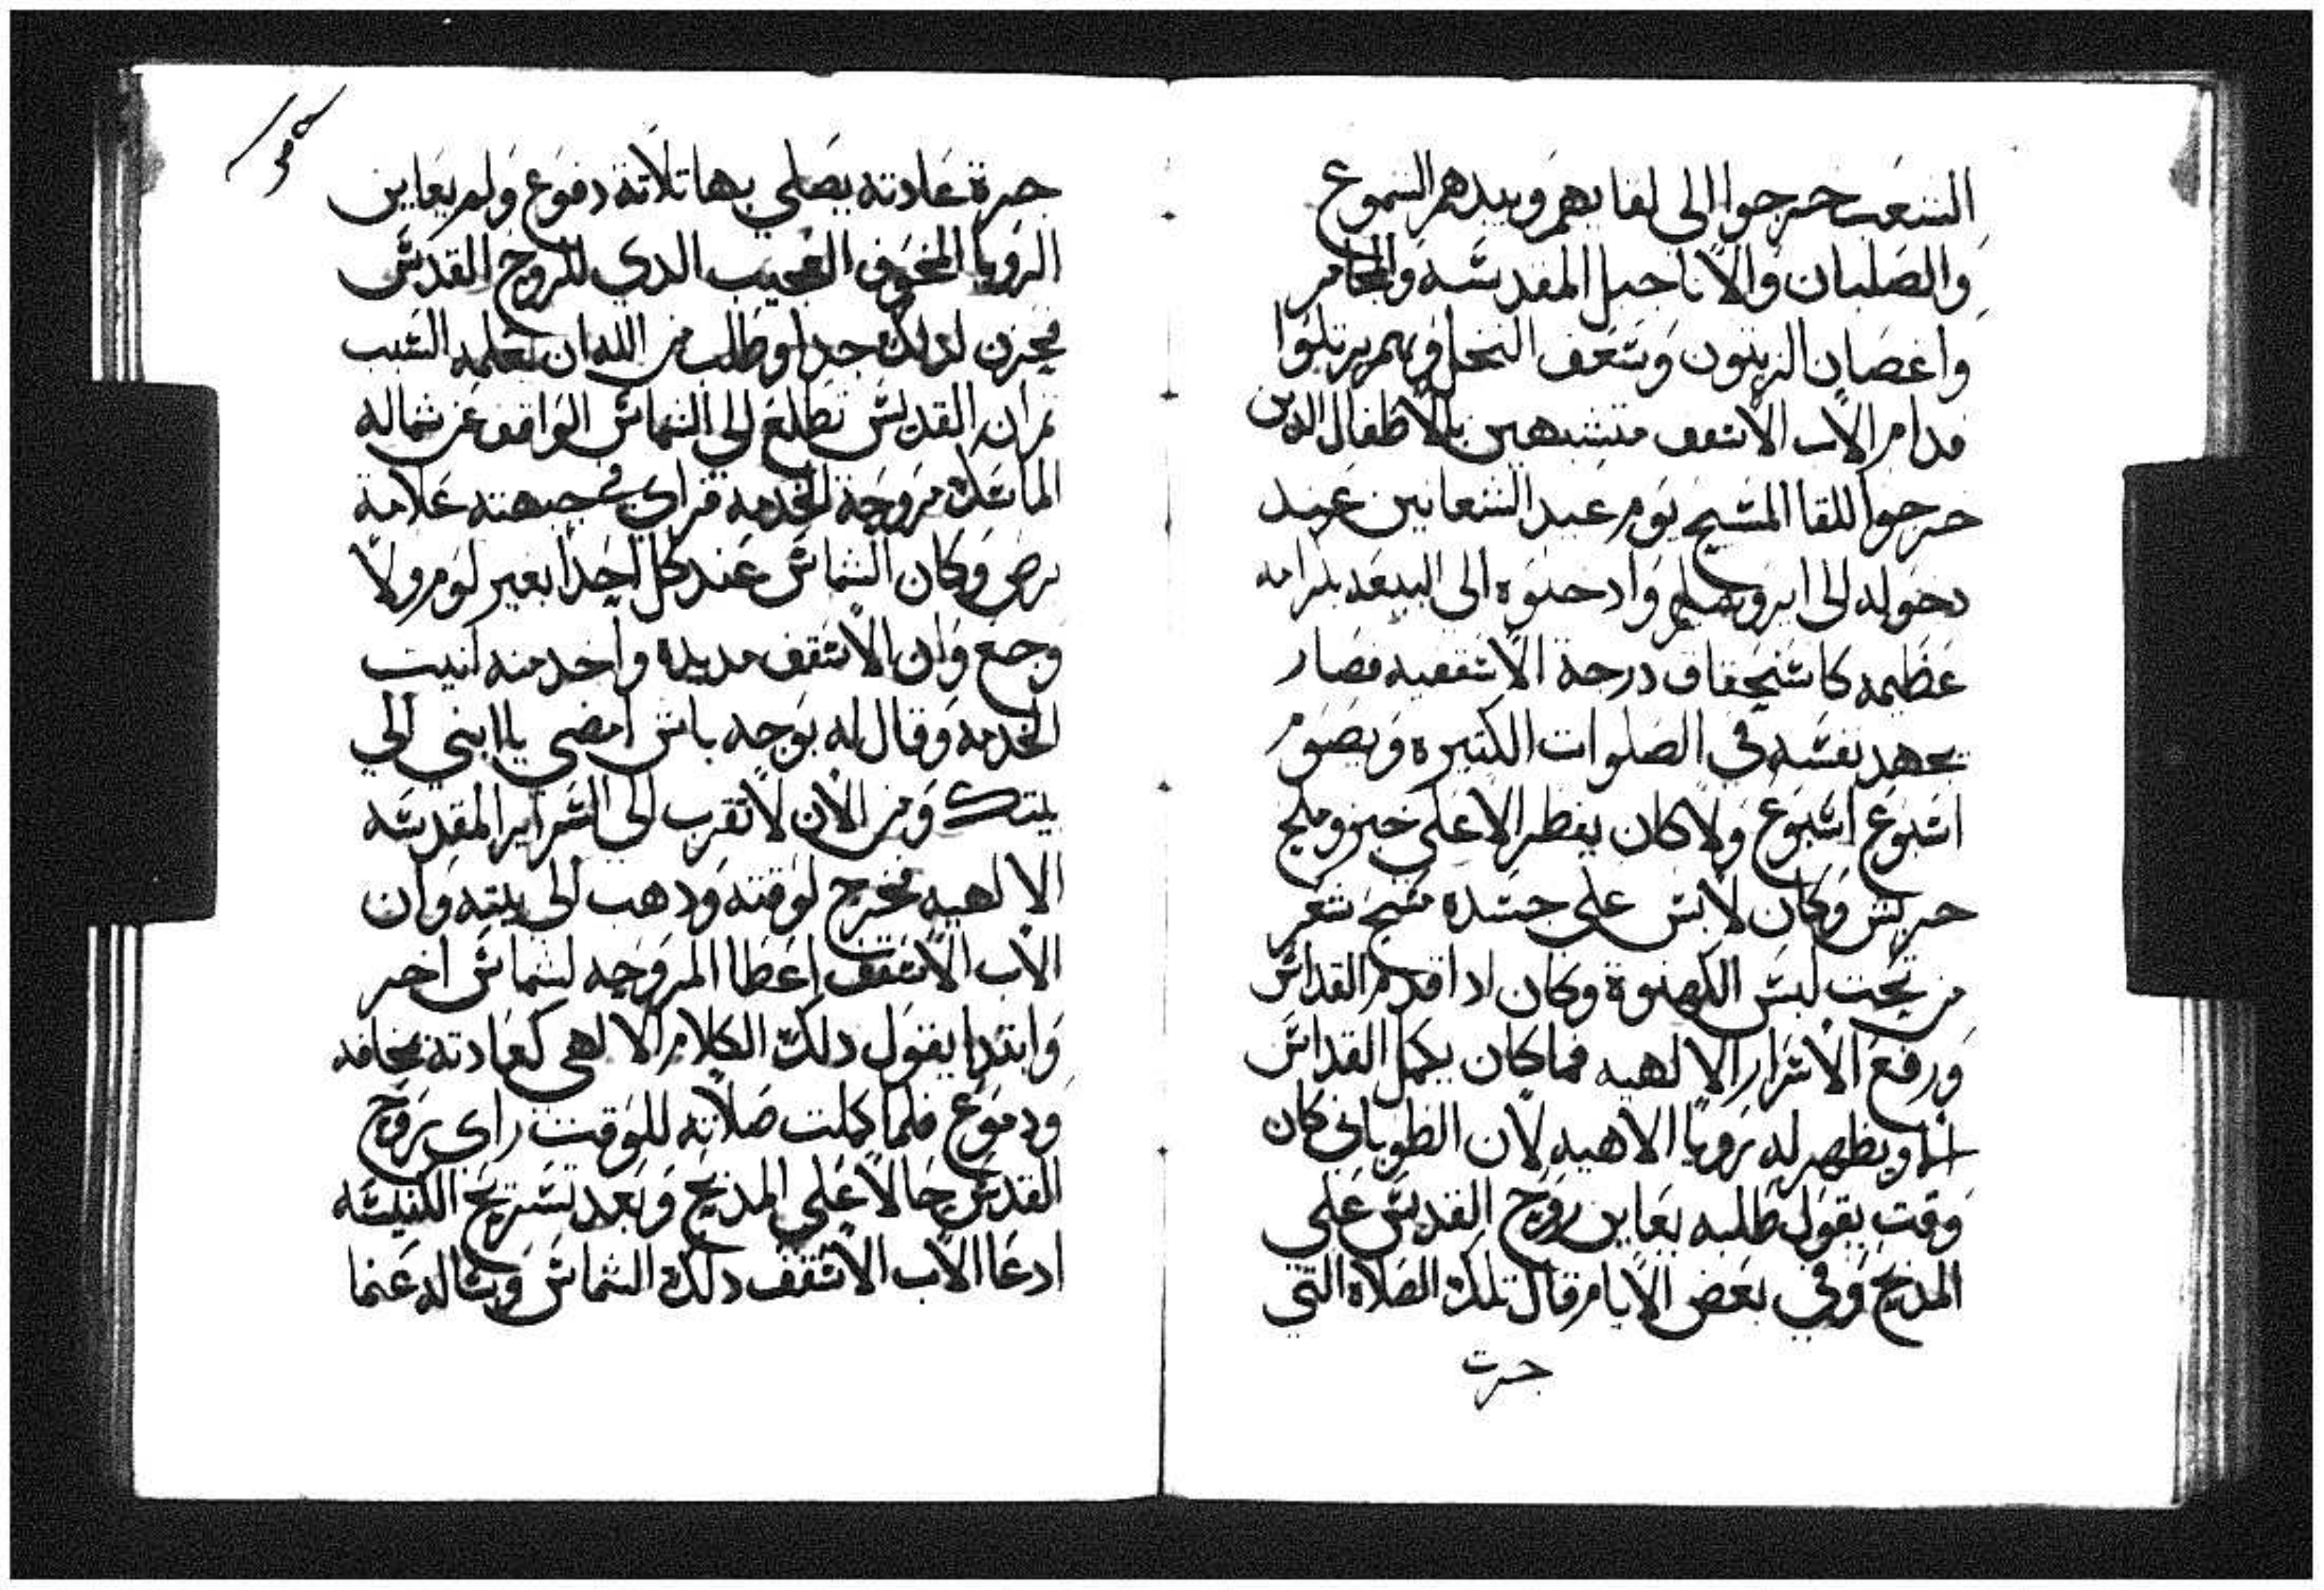 الشعب خرجوا الى لقايهم وبيدهم الشموع
والصلبان والاناجيل المقدسه والمجامر
واغصان الزيتون وسعف النخل وهم يرتلوا
قدام الاب الاسقف متشبهين بالاطفال الدين
خرجوا للقا المسيح يوم عيد الشعانين عند
دخوله الى ايروشليم وادخلوه الى البيعه بكرامه
عظيمه كاستحقاق درجة الاسقفيه فصار
يجهد نفسه في الصلوات الكتيره ويصوم
اسبوع اسبوع ولا كان يفطر الا على خبز وملح
جريش وكان لابس على جسده مسح شعر
من تحت لبس الكهنوة وكان ادا قدم القداس
ورفع الاسرار الالهيه فما كان يكمل القداس
الا ويظهر له رويا الاهيه لان الطوباني كان
وقت يقول طلبه يعاين روح القدس على
المدبح وفي بعض الايام قال تلك الصلاة التي
جرت
جرة عادته يصلي بها تلاتة دفوع ولم يعاين
الرويا المخوف العجيب الدي للروح القدس
فحزن لدلك جدا وطلب من الله ان يعلمه السبب
تم ان القديس تطلع الى الشماس الواقف عن شماله
الماسك مروحة الخدمه فراي في جبهته علامة
برص وكان الشماس عند كل احدا بغير لوم ولا
وجع وان الاسقف مد يده واخد منه انيت
الخدمه وقال له بوجه باش امضي يا ابني الي
بيتك ومن الان لا تقرب الى السراير المقدسه
الالهيه فخرج لوقته ودهب الى بيته وان
الاب الاسقف اعطا المروحه لشماس اخر
وابتدا يقول دلك الكلام الالهي كعادته بمخافه
ودموع فلما كملت صلاته للوقت راى روح
القدس حالا على المدبح وبعد تسريح الكنيسه
ادعا الاب الاسقف دلك الشماس وساله عنما